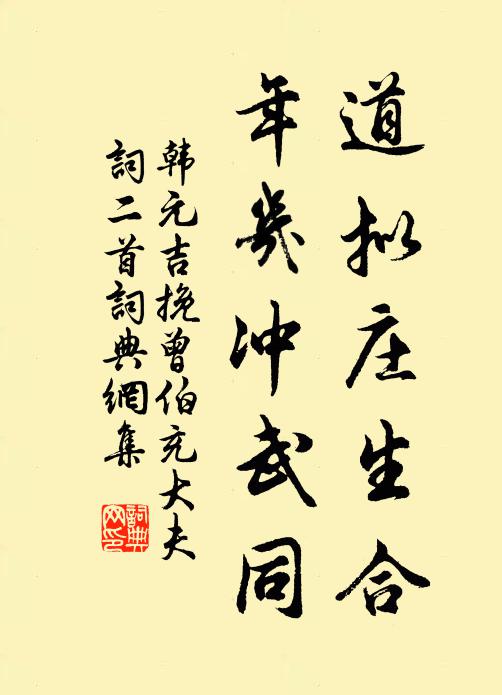 道拟庄生合
年几冲武同
韩元吉挽曾伯充大夫
词二首词典網集
詞典网印